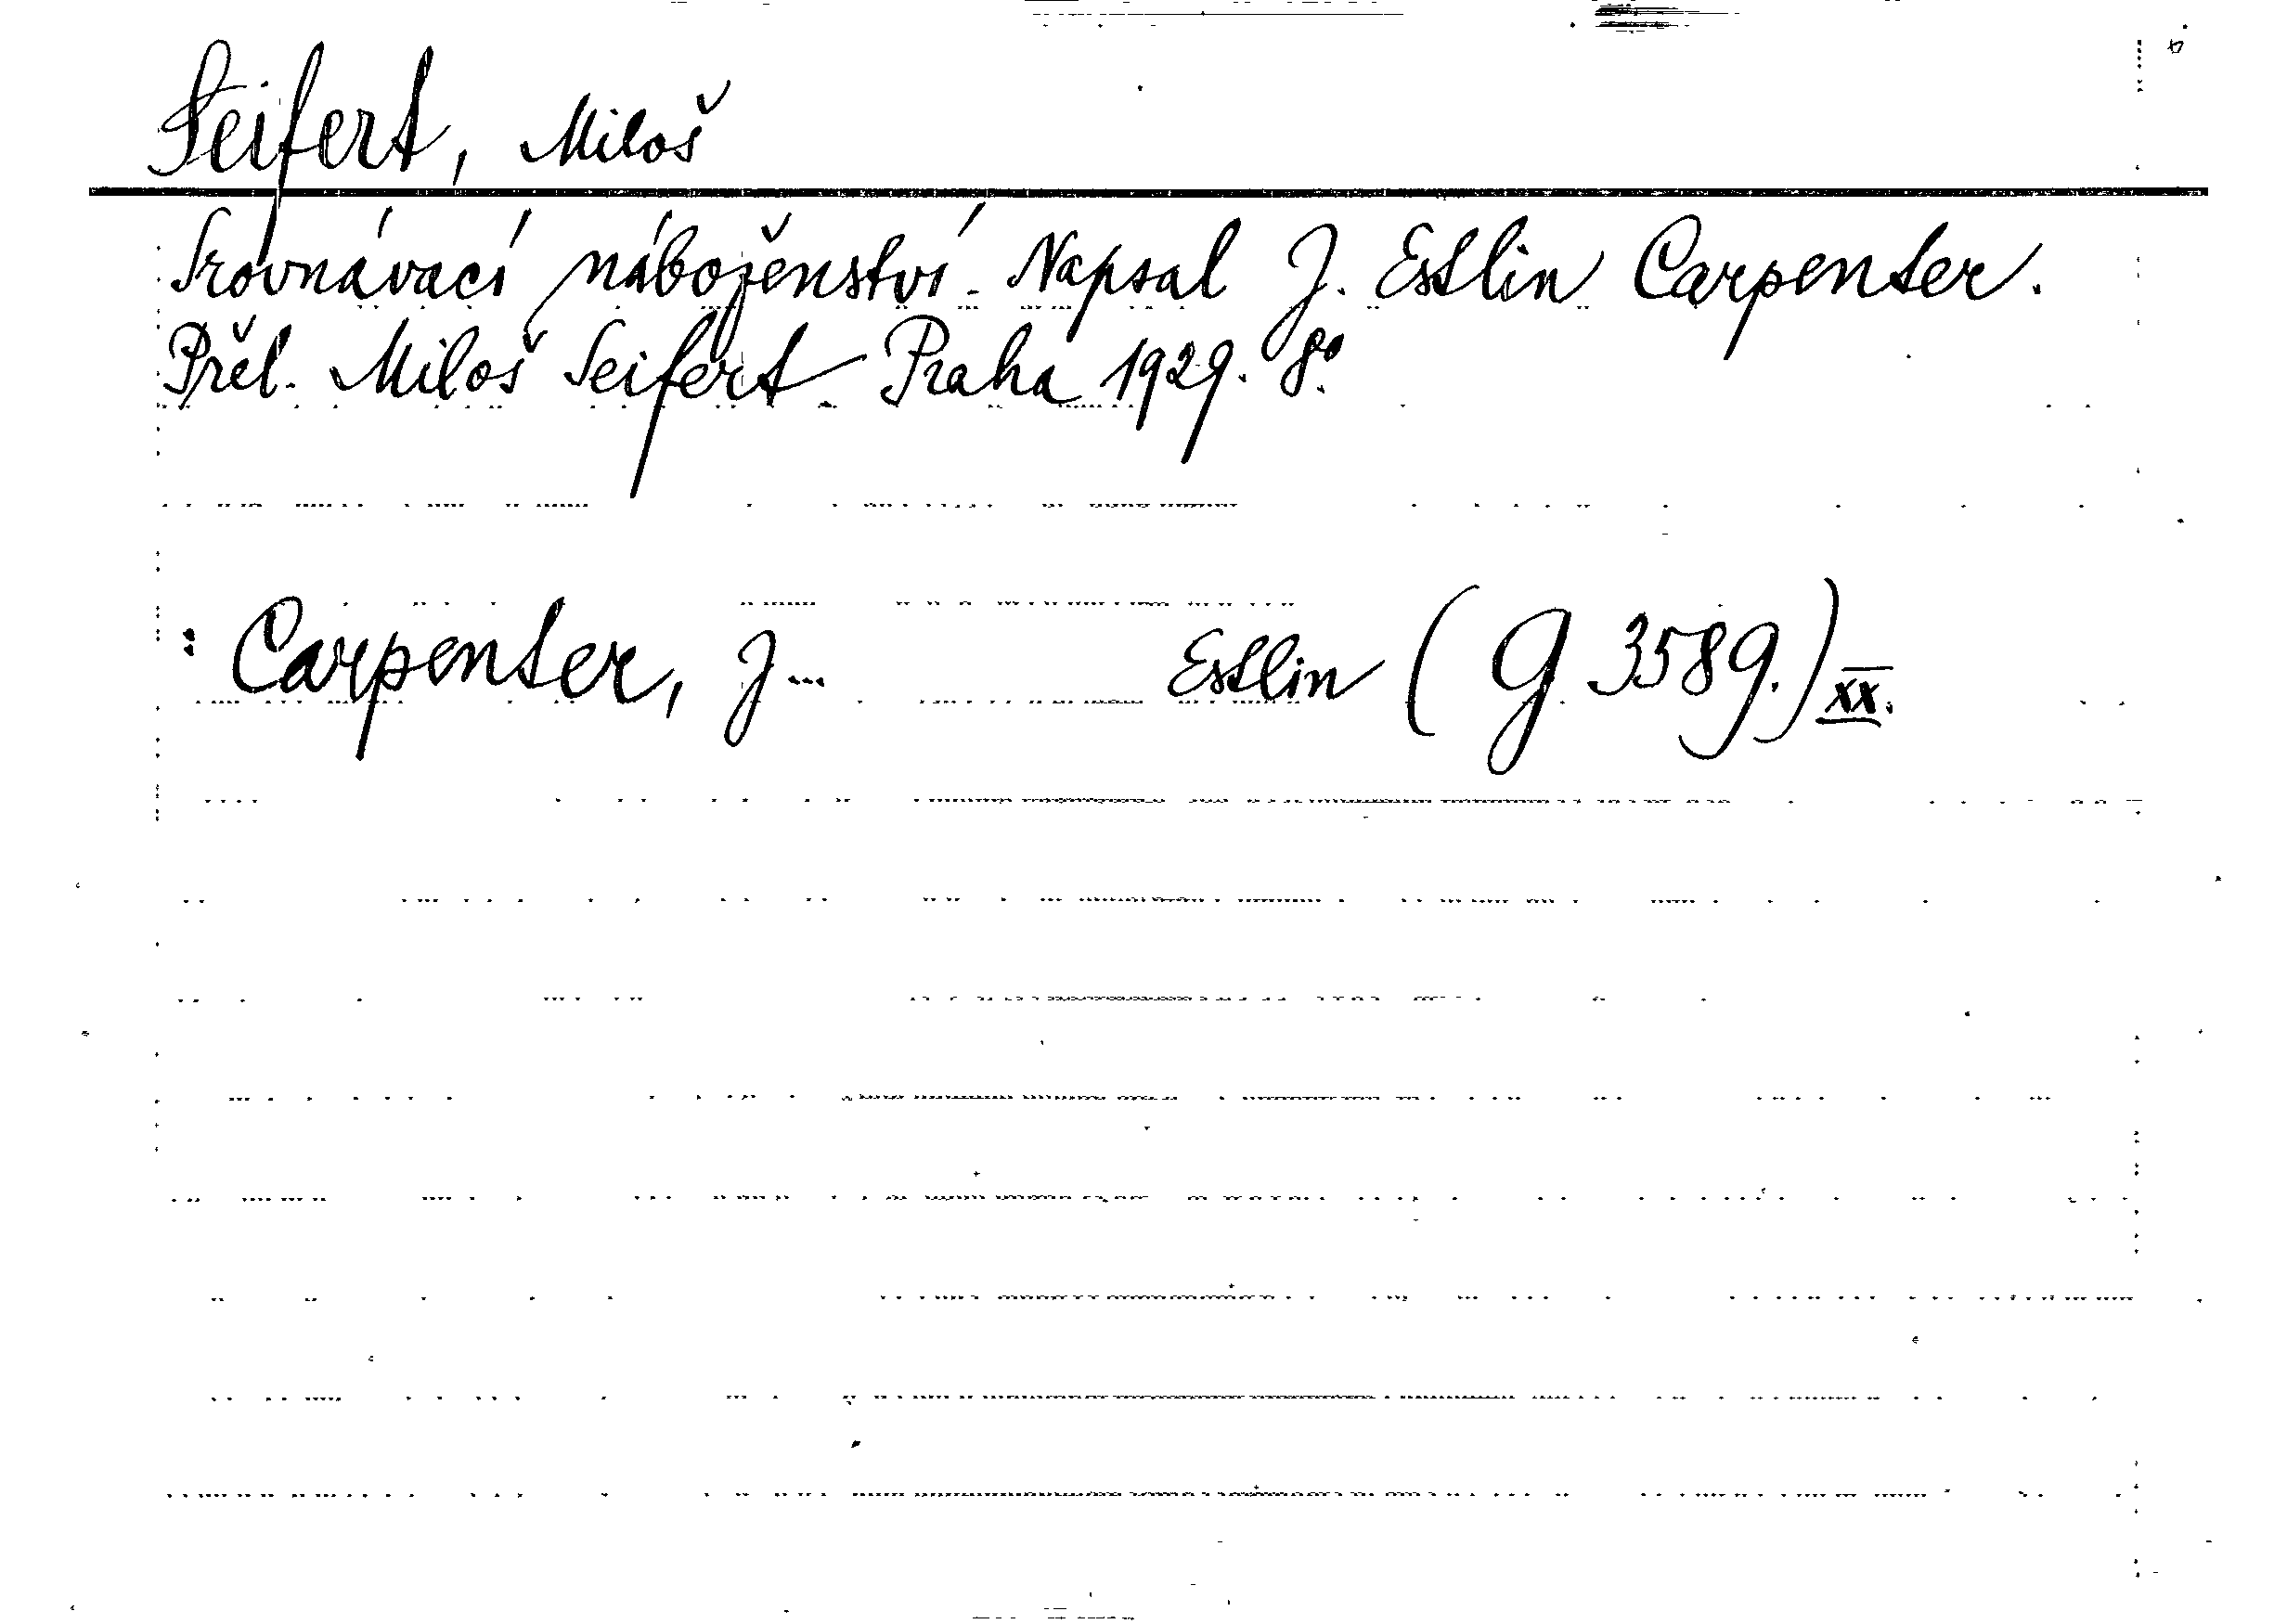 Seifert, Miloš
Srovnávací náboženství. Napsal J. Estlin Carpenter.
Přel. Miloš Seifert. Praha 1929. 8°.
: Carpenter, J... Estlin (G. 3589.) XX.